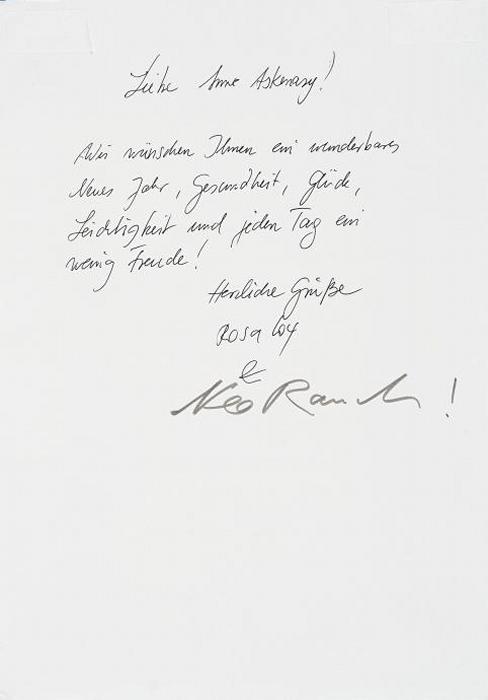 Liebe Anne Askenasy!
Wir wünschen Ihnen ein wunderbares
Neues Jahr, Gesundheit, Glück,
Leichtigkeit und jeden Tag ein
wenig Freude!
Herzliche Grüße
Rosa Loy
&
Neo Rauch!